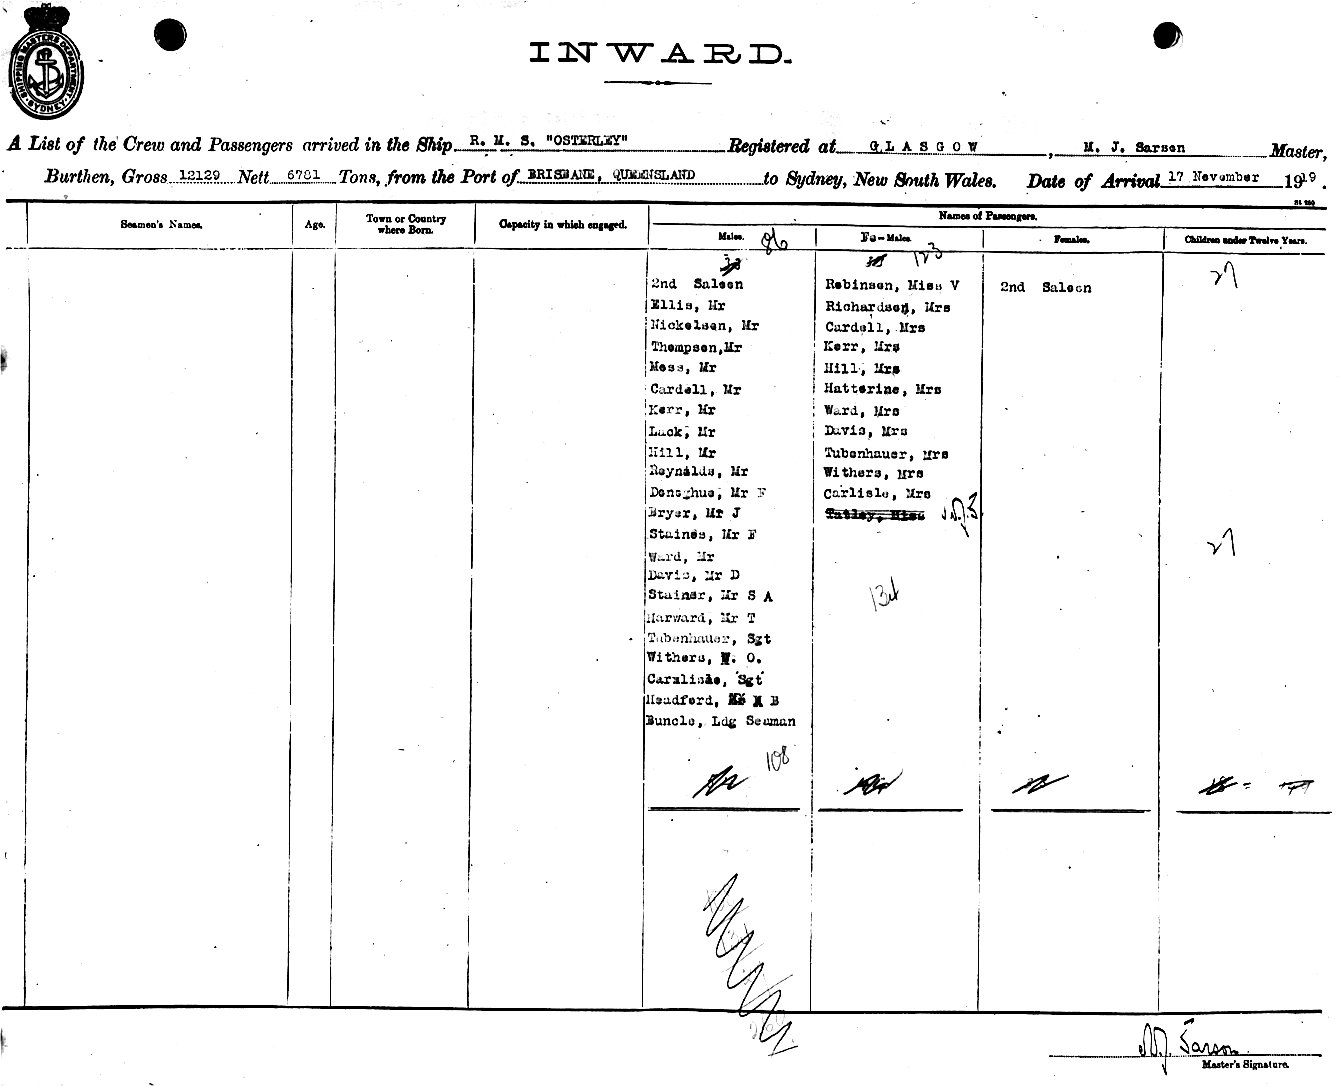 SHIPPING MASTERS DEPARTMENT SYDNEY
INWARD.
A List of the Crew and Passengers arrived in the Ship R. M. S. "OSTERLEY" Registered at GLASGOW, M. J. Sarson Master,
Burthen, Gross 12129 Nett 6781 Tons, from the Port of BRISBANE, QUEENSLAND to Sydney, New South Wales. Date of Arrival 17 November 1919.
Seamen's Names. Age. Town or Country where Born. Capacity in which engaged. Names of Passengers.
Males. 86 Fe-Males. 123 Females. Children under Twelve Years.
27
2nd Saloon
Ellis, Mr
Nickelsen, Mr
Thompson,Mr
Moss, Mr
Cardell, Mr
Kerr, Mr
Lack, Mr
Hill, Mr
Reynalds, Mr
Donoghue, Mr F
Bryer, Mr J
Staines, Mr F
Ward, Mr
Davis, Mr D
Stainer, Mr S A
Harward, Mr T
Tubenhauer, Sgt
Withers, W. O.
Caralisle, Sgt
Headford, M B
Buncle, Ldg Seaman
108
Robinson, Miss V
Richardson, Mrs
Cardell, Mrs
Kerr, Mrs
Hill, Mrs
Hatterine, Mrs
Ward, Mrs
Davis, Mrs
Tubenhauer, Mrs
Withers, Mrs
Carlisle, Mrs
Tatley, Miss M.J.S
134
2nd Saloon
27
M.J. Sarson
Master's Signature.